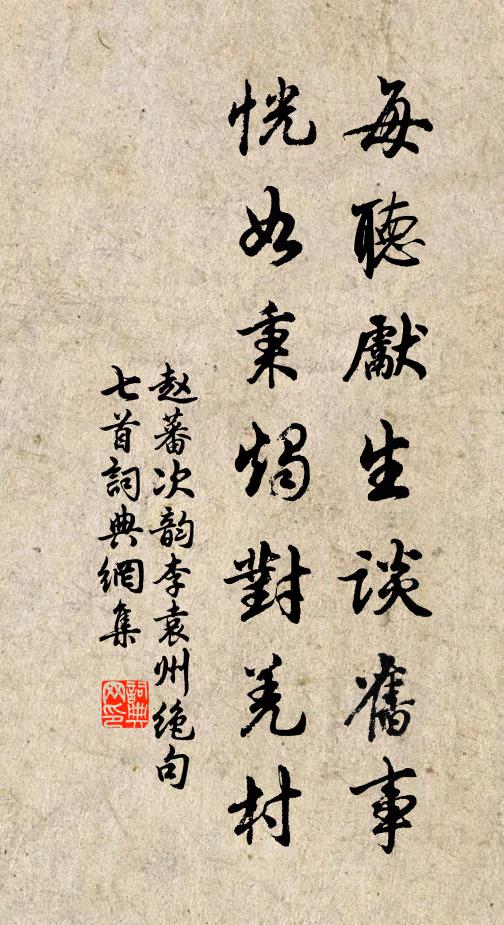 每聽獻生谈舊事
恍如秉燭對羌村
赵蕃次韵李袁州绝句
七首詞典網集
詞典网印